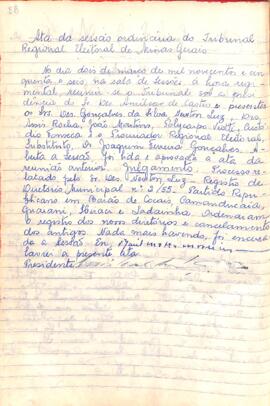 88
Ata da sessão ordinária do Tribunal
Regional Eleitoral de Minas Gerais
No dia dois de março de mil novecento e cin
quenta e seis, na sala de sessões, à hora regi
mental, reuniu-se o Tribunal sob a presi
dência do Sr. Des. Amilcar de Castro e presentes
os Srs. Des. Gonçalves da Silva, Newton Luz, Drs.
João Martins,
Fonseca e o Procurador Regional Eleitoral,
Substituto, Dr. Joaquim Ferreira Gonçalves. A
berta a sessão, foi lida e aprovada a ata da
reunião anterior. Julgamento. Processo re
latado pelo Sr. Des. Newton Luz - Registro de
Diretório Municipal nº 2/55. Partido Repu
blicano em Barão de Cocais, Camanducaia,
Guarani, Ibiraci e Ladainha. Ordenaram
o registro dos novos diretórios e cancelamento
dos antigos. Nada mais havendo, foi encerra
da a sessão. Eu,
lavrei a presente ata.
Presidente